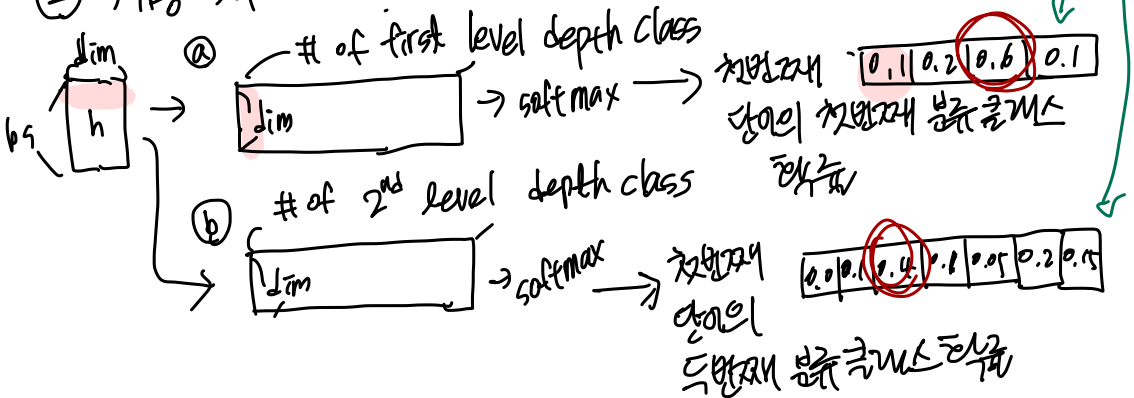 dim
bs
h
ⓐ # of first level depth class
dim
→ softmax →
첫번째
단어의 첫번째 분류 클래스
확률
0.1 0.2 0.6 0.1
ⓑ # of 2nd level depth class
dim
→ softmax →
첫번째
단어의
두번째 분류 클래스 확률
0.0 0.1 0.4 0.1 0.05 0.2 0.15